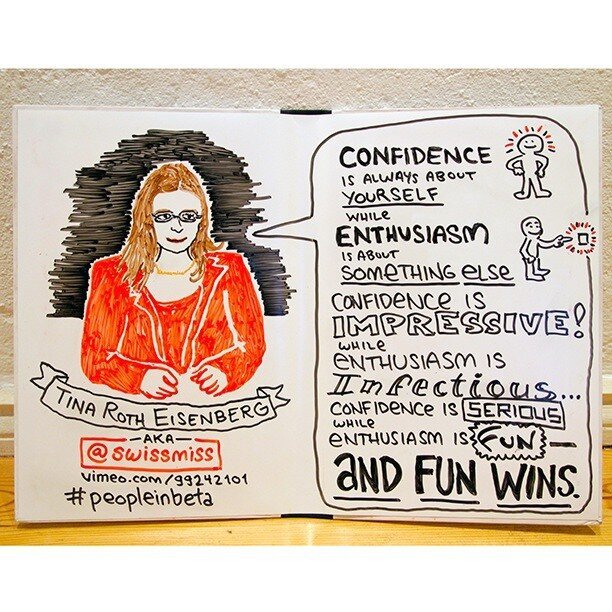 TINA ROTH EISENBERG
AKA
@swissmiss
vimeo.com/99242101
#peopleinbeta
CONFIDENCE
IS ALWAYS ABOUT
YOURSELF
WHILE
ENTHUSIASM
IS ABOUT
SOMETHING ELSE
CONFIDENCE IS
IMPRESSIVE!
WHILE
ENTHUSIASM IS
Infectious...
CONFIDENCE IS SERIOUS
WHILE
ENTHUSIASM IS FUN—
AND FUN WINS.